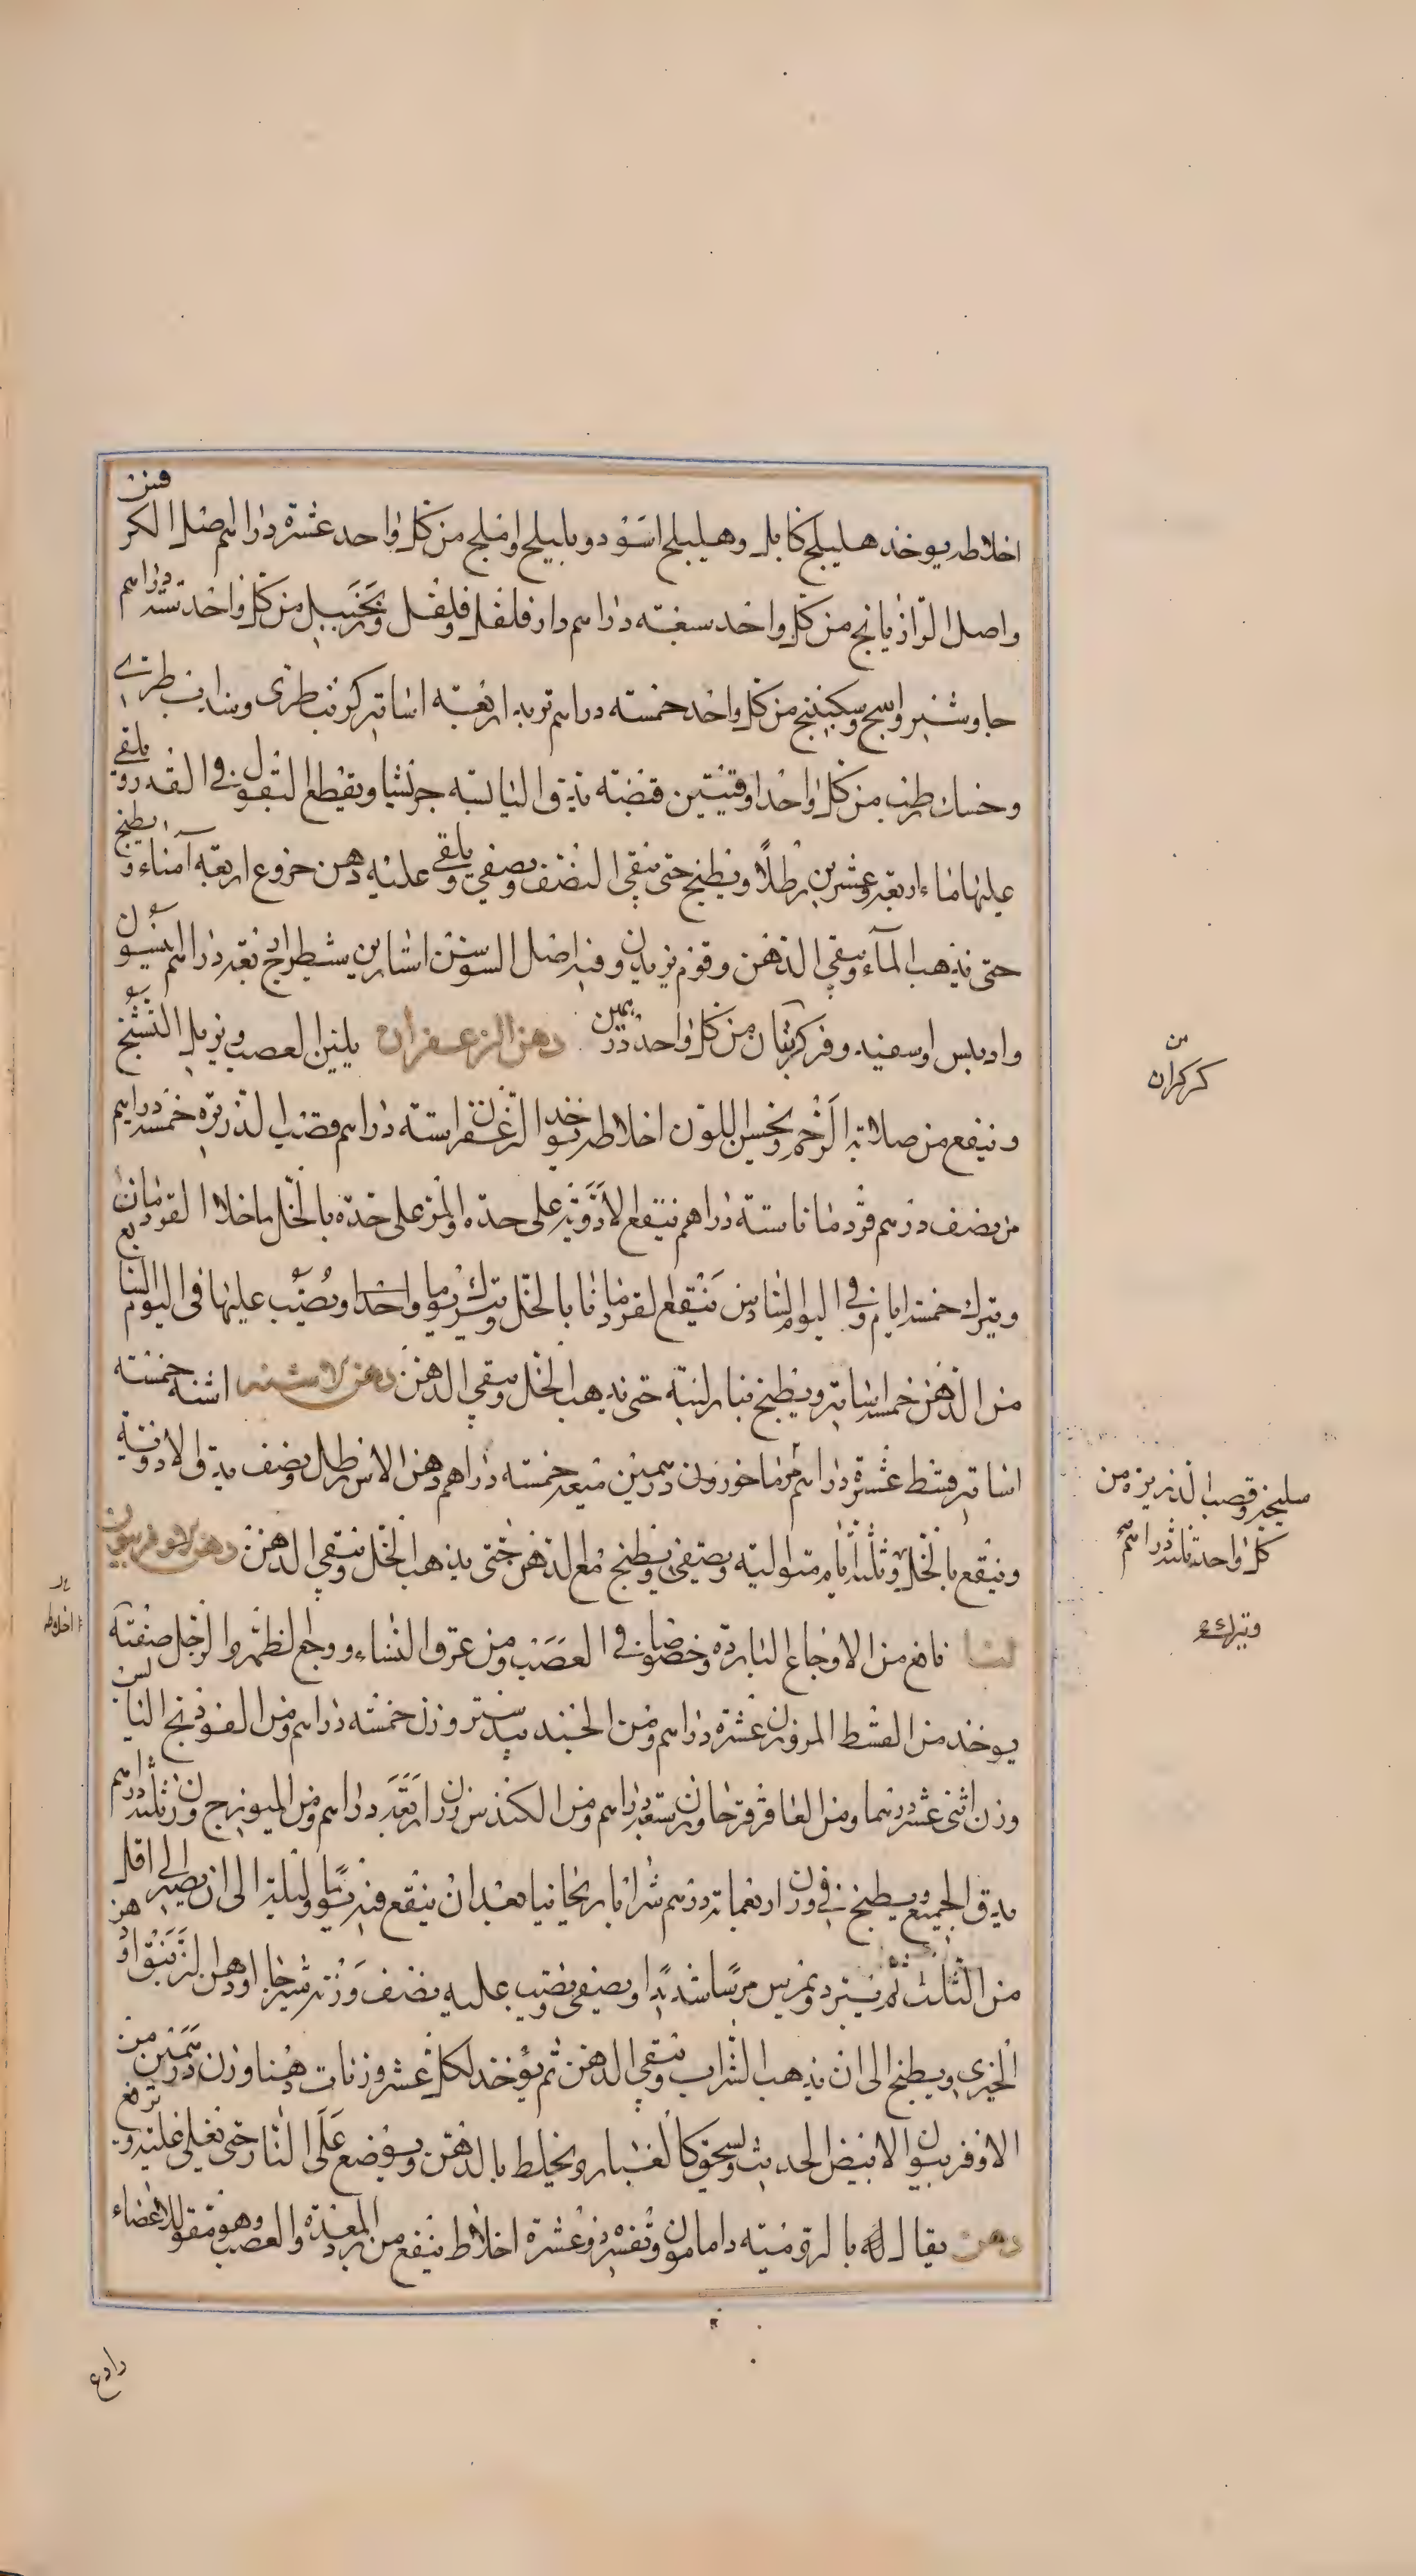 اخلاطه يوخذ هليلج كابلي وهليلج اسود وبليلج واملج من كل واحد عشرة دراهم اصل الكرفس
واصل الرازيانج من كل واحد سبعة دراهم دارفلفل وفلفل وزنجبيل من كل واحد ستة دراهم
جاوشير واشج وسكبينج من كل واحد خمسة دراهم تربد اربعة اساتير كرنب طري وسداب طري
وحسك رطب من كل واحد اوقيتين قضبه يدق اليابسة جريشا ويقطع البقول في القدر ويلقى
عليها ماء اربعة وعشرين رطلا ويطبخ حتى يبقى النصف ويصفى ويلقى عليه دهن خروع اربعة آمناء ويطبخ
حتى يذهب الماء ويبقى الدهن وقوم يزيدون فيه اصل السوسن استارين شيطرج اربعة دراهم انيسون
من كل واحد درهمين دهن الزعفران يلين العصب ويزيل التشنج
وينفع من صلابة الرحم ويحسن اللون اخلاطه يوخذ الزعفران ستة دراهم قصب الذريرة خمسة دراهم
مر نصف درهم قردمانا ستة دراهم ينقع الادوية على حدة والمر على حدة بالخل ما خلا القردمانا
ويترك خمسة ايام وفي اليوم السادس ينقع القردمانا بالخل ويترك يوما واحدا ويصب عليها في اليوم السابع
من الدهن خمسة اساتير ويطبخ بنار لينة حتى يذهب الخل ويبقى الدهن دهن الاشنه اشنه خمسة
اساتير قسط عشرة دراهم مرماخوزون درهمين ميعه خمسة دراهم دهن الاس رطل ونصف يدق الادوية
وينقع بالخل ثلثة ايام متوالية ويصفى ويطبخ مع الدهن حتى يذهب الخل ويبقى الدهن دهن الاوفربيون
لنا نافع من الاوجاع الباردة وخصوصا في العصب ومن عرق النساء ووجع الظهر والرجل صفته
يوخذ من القسط المر وزن عشرة دراهم ومن الجندبيدستر وزن خمسة دراهم ومن الفوذنج اليابس
وزن اثنى عشر درهما ومن العاقرقرحا وزن سبعة دراهم ومن الكندس وزن اربعة دراهم ومن الميويزج وزن ثلثة دراهم
يدق الجميع ويطبخ في وزن اربعماية درهم شرابا ريحانيا بعد ان ينقع فيه يوما وليلة الى ان يصير الى اقل
من الثلث ثم يبرد ويمرس مرسا شديدا ويصفى ويصب عليه نصف وزنه شيرجا او دهن الزنبق او دهن
الخيري ويطبخ الى ان يذهب الشراب ويبقى الدهن ثم يؤخذ لكل عشر وزنات دهنا وزن درهمين من
الاوفربيون الابيض الحديث ويسحق كالغبار ويخلط بالدهن ويوضع على النار حتى يغلى غلية ويرفع
دهن يقال له بالرومية دامامون وتفسيره ذو عشرة اخلاط ينفع من برد المعدة والعصب وهو مقو للاعضاء
من
كركران
سليخه وقصب الذريرة من
كل واحد ثلثة دراهم صح
ويترك
اخلاطه